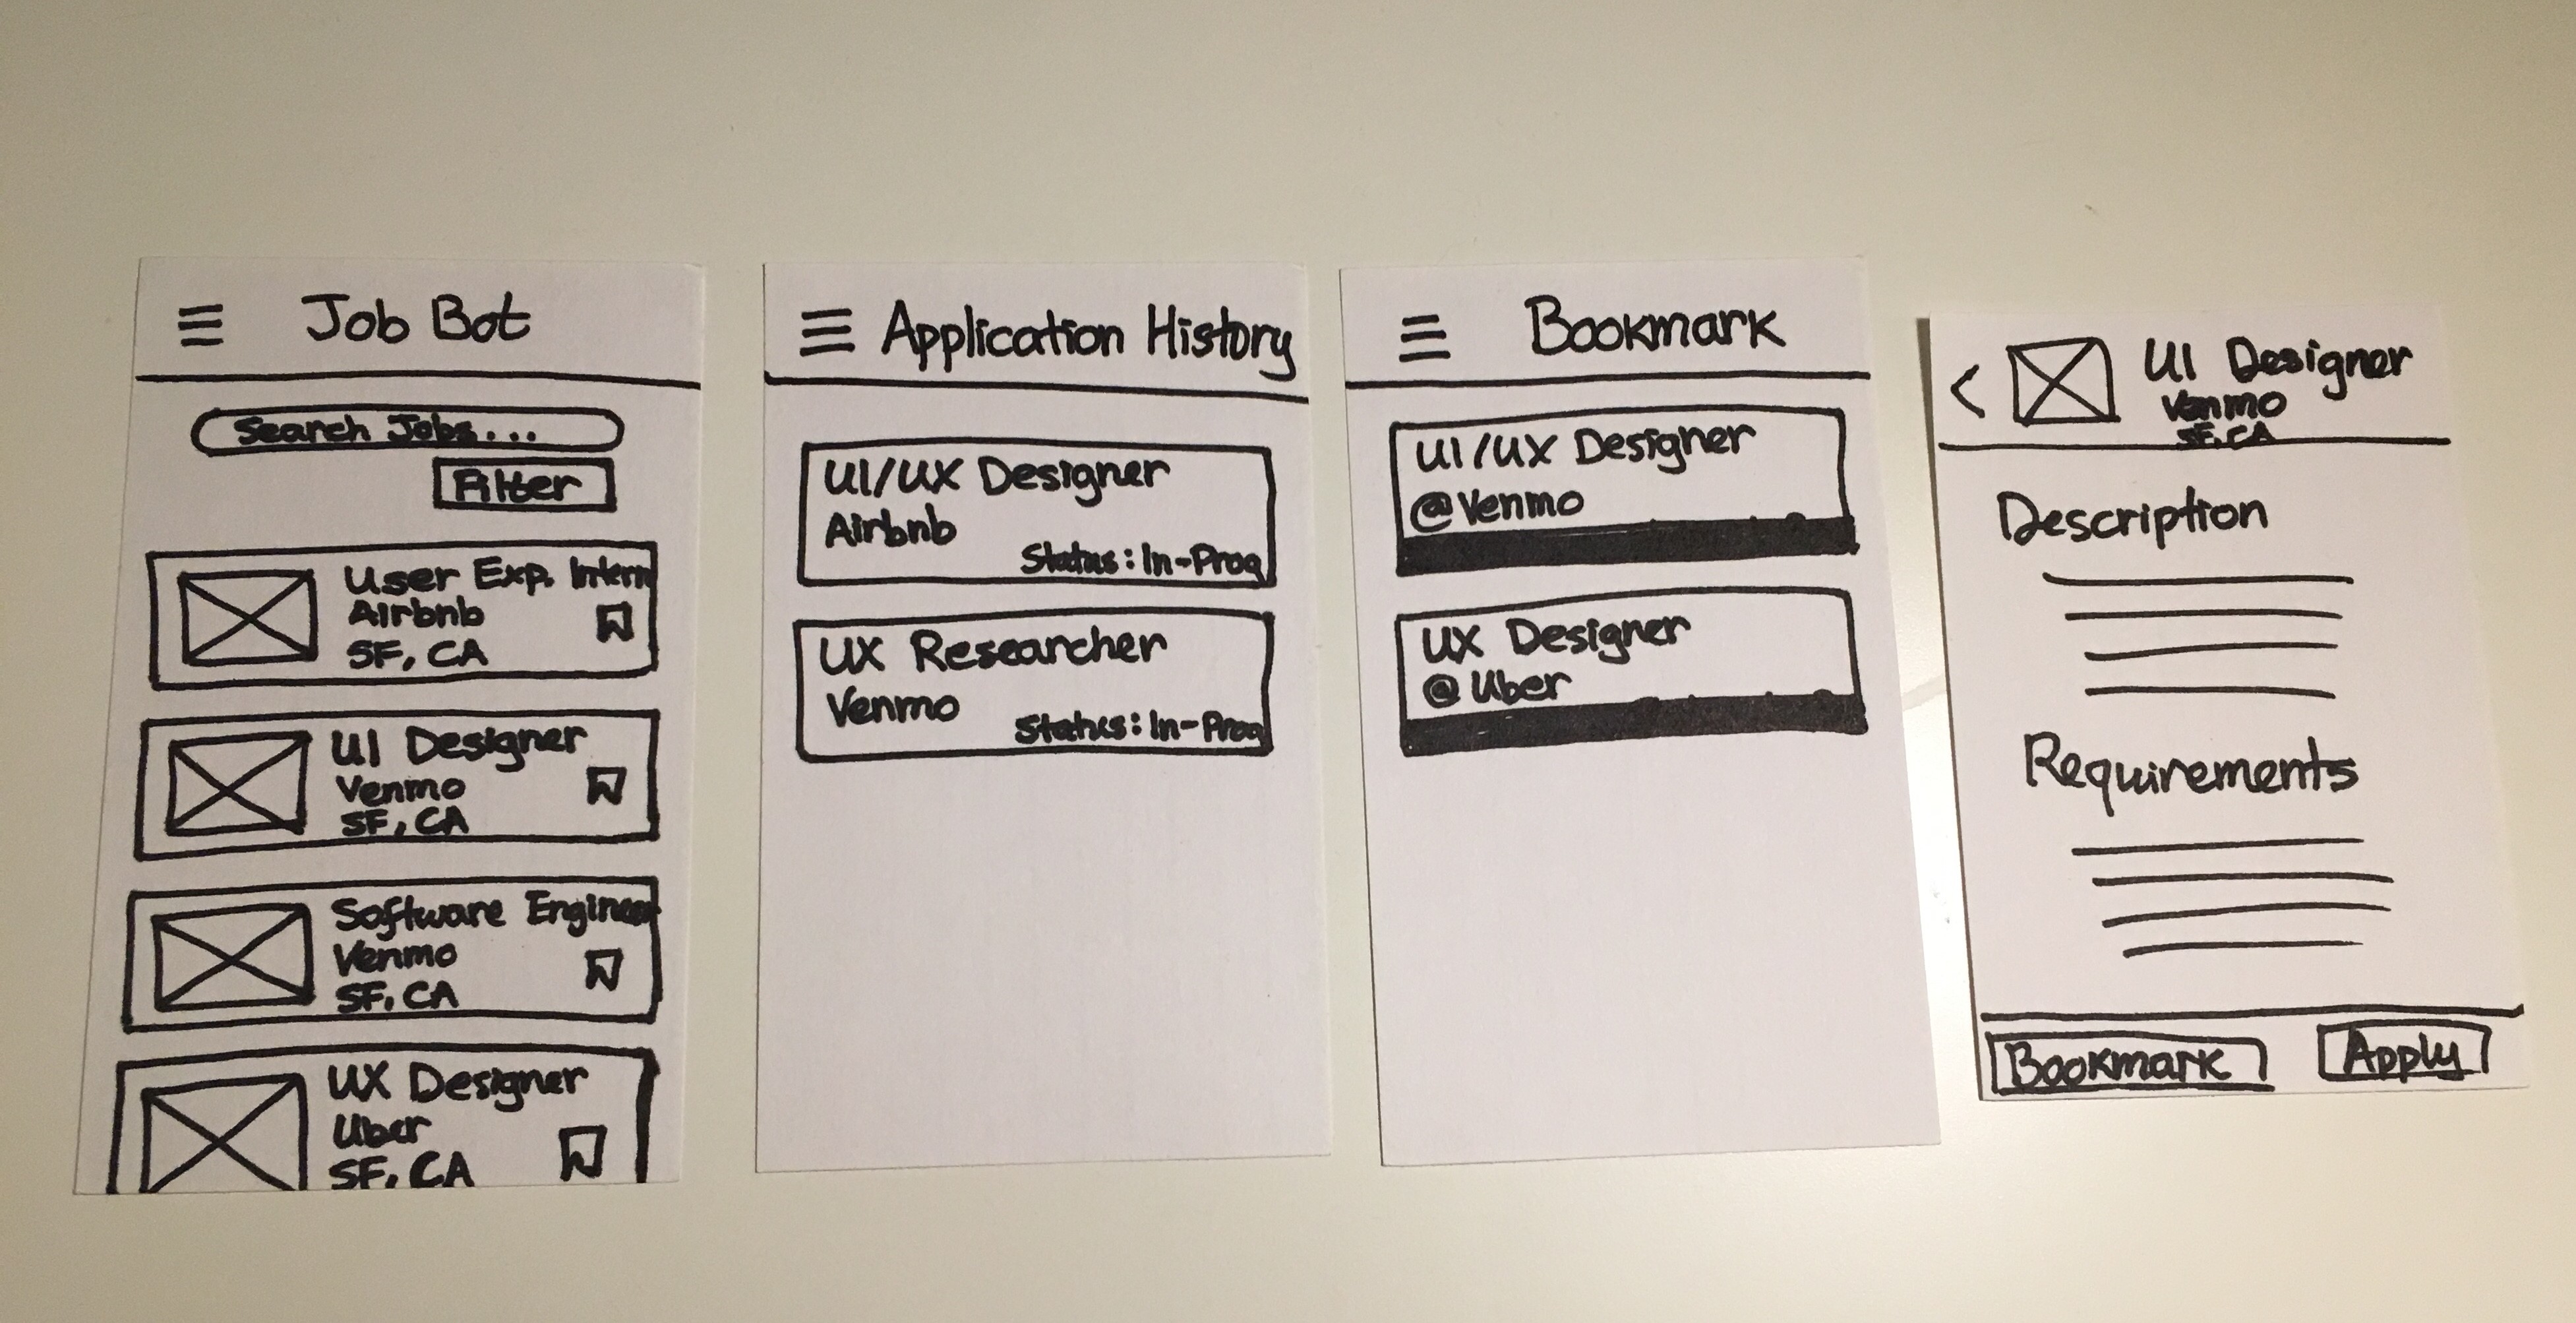 Job Bot
Search Jobs...
Filter
User Exp. Intern
Airbnb
SF, CA
UI Designer
Venmo
SF, CA
Software Engineer
Venmo
SF, CA
UX Designer
Uber
SF, CA
Application History
UI/UX Designer
Airbnb
Status: In-Prog
UX Researcher
Venmo
Status: In-Prog
Bookmark
UI/UX Designer
@Venmo
UX Designer
@Uber
< UI Designer
Venmo
SF, CA
Description
Requirements
Bookmark
Apply